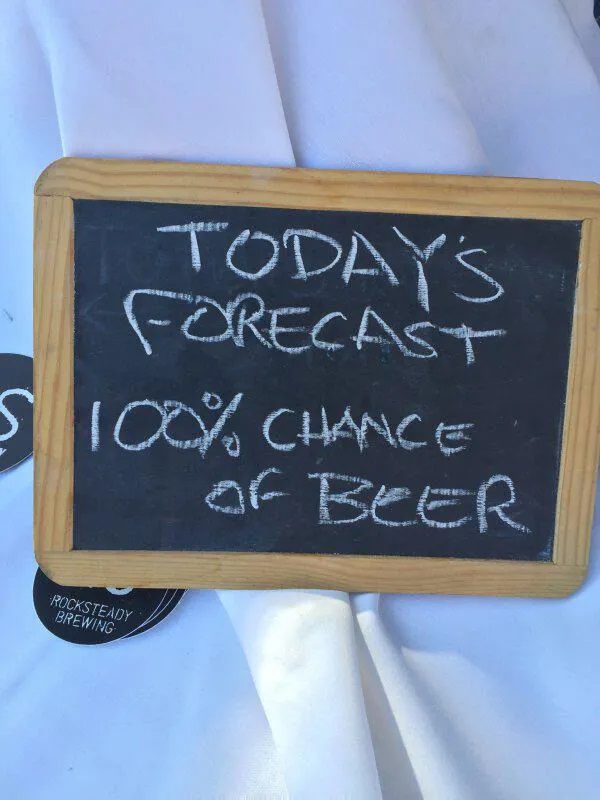 TODAY'S
FORECAST
100% CHANCE
OF BEER
ROCKSTEADY
BREWING